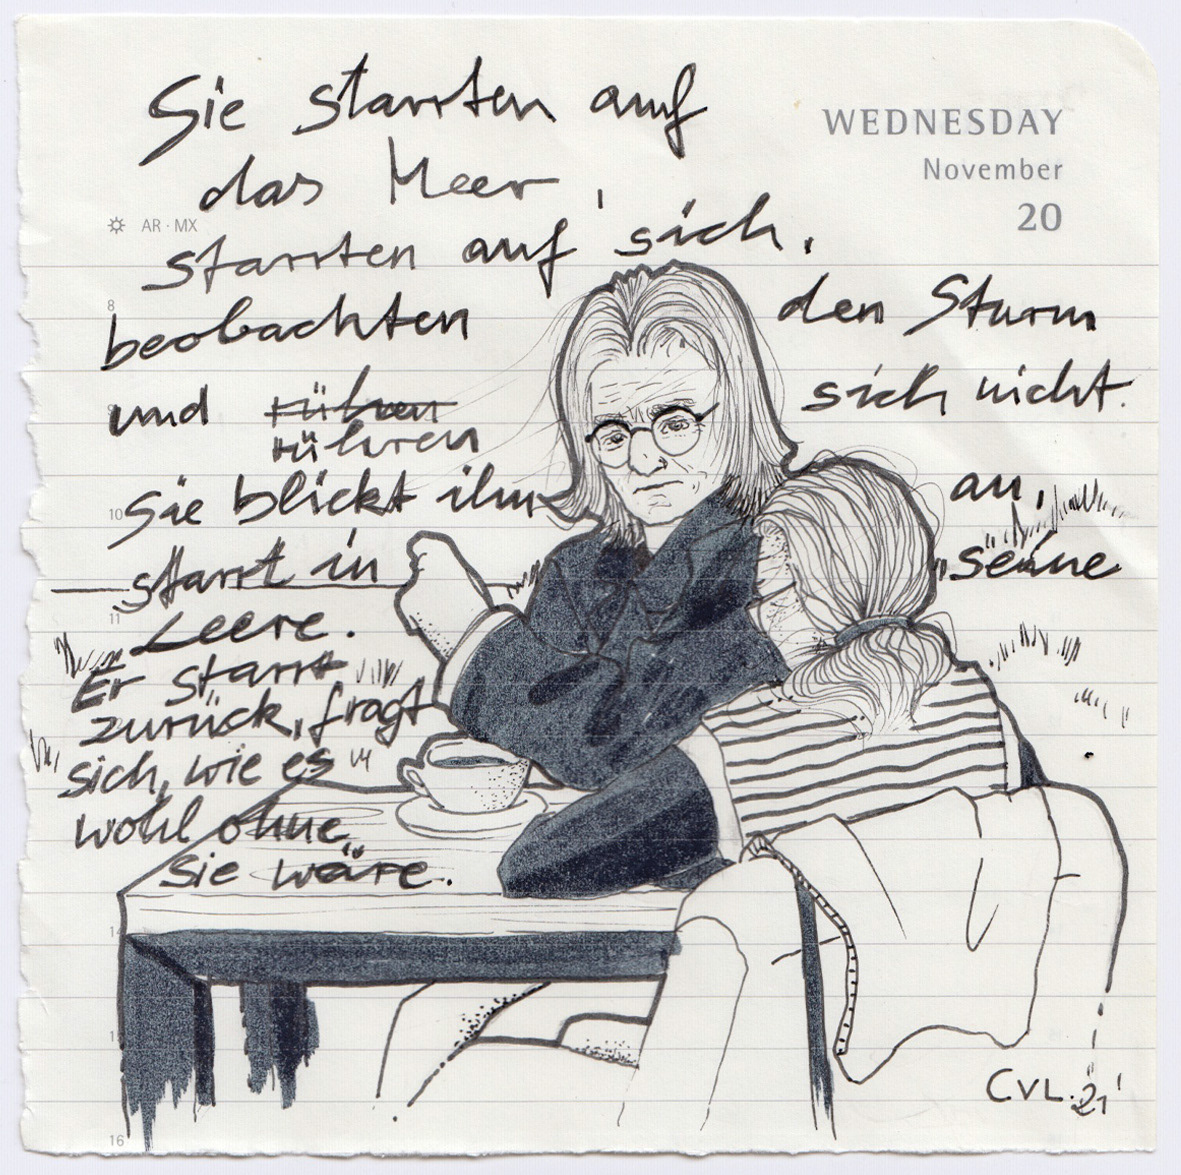 Sie starrten auf
das Meer,
starrten auf sich,
beobachten den Sturm
und rühren
rühren sich nicht.
Sie blickt ihn an,
starrt in seine
Leere.
Er starrt
zurück, fragt
sich, wie es
wohl ohne
sie wäre.
WEDNESDAY
November
20
AR · MX
8
9
10
11
14
16
CVL. 21'